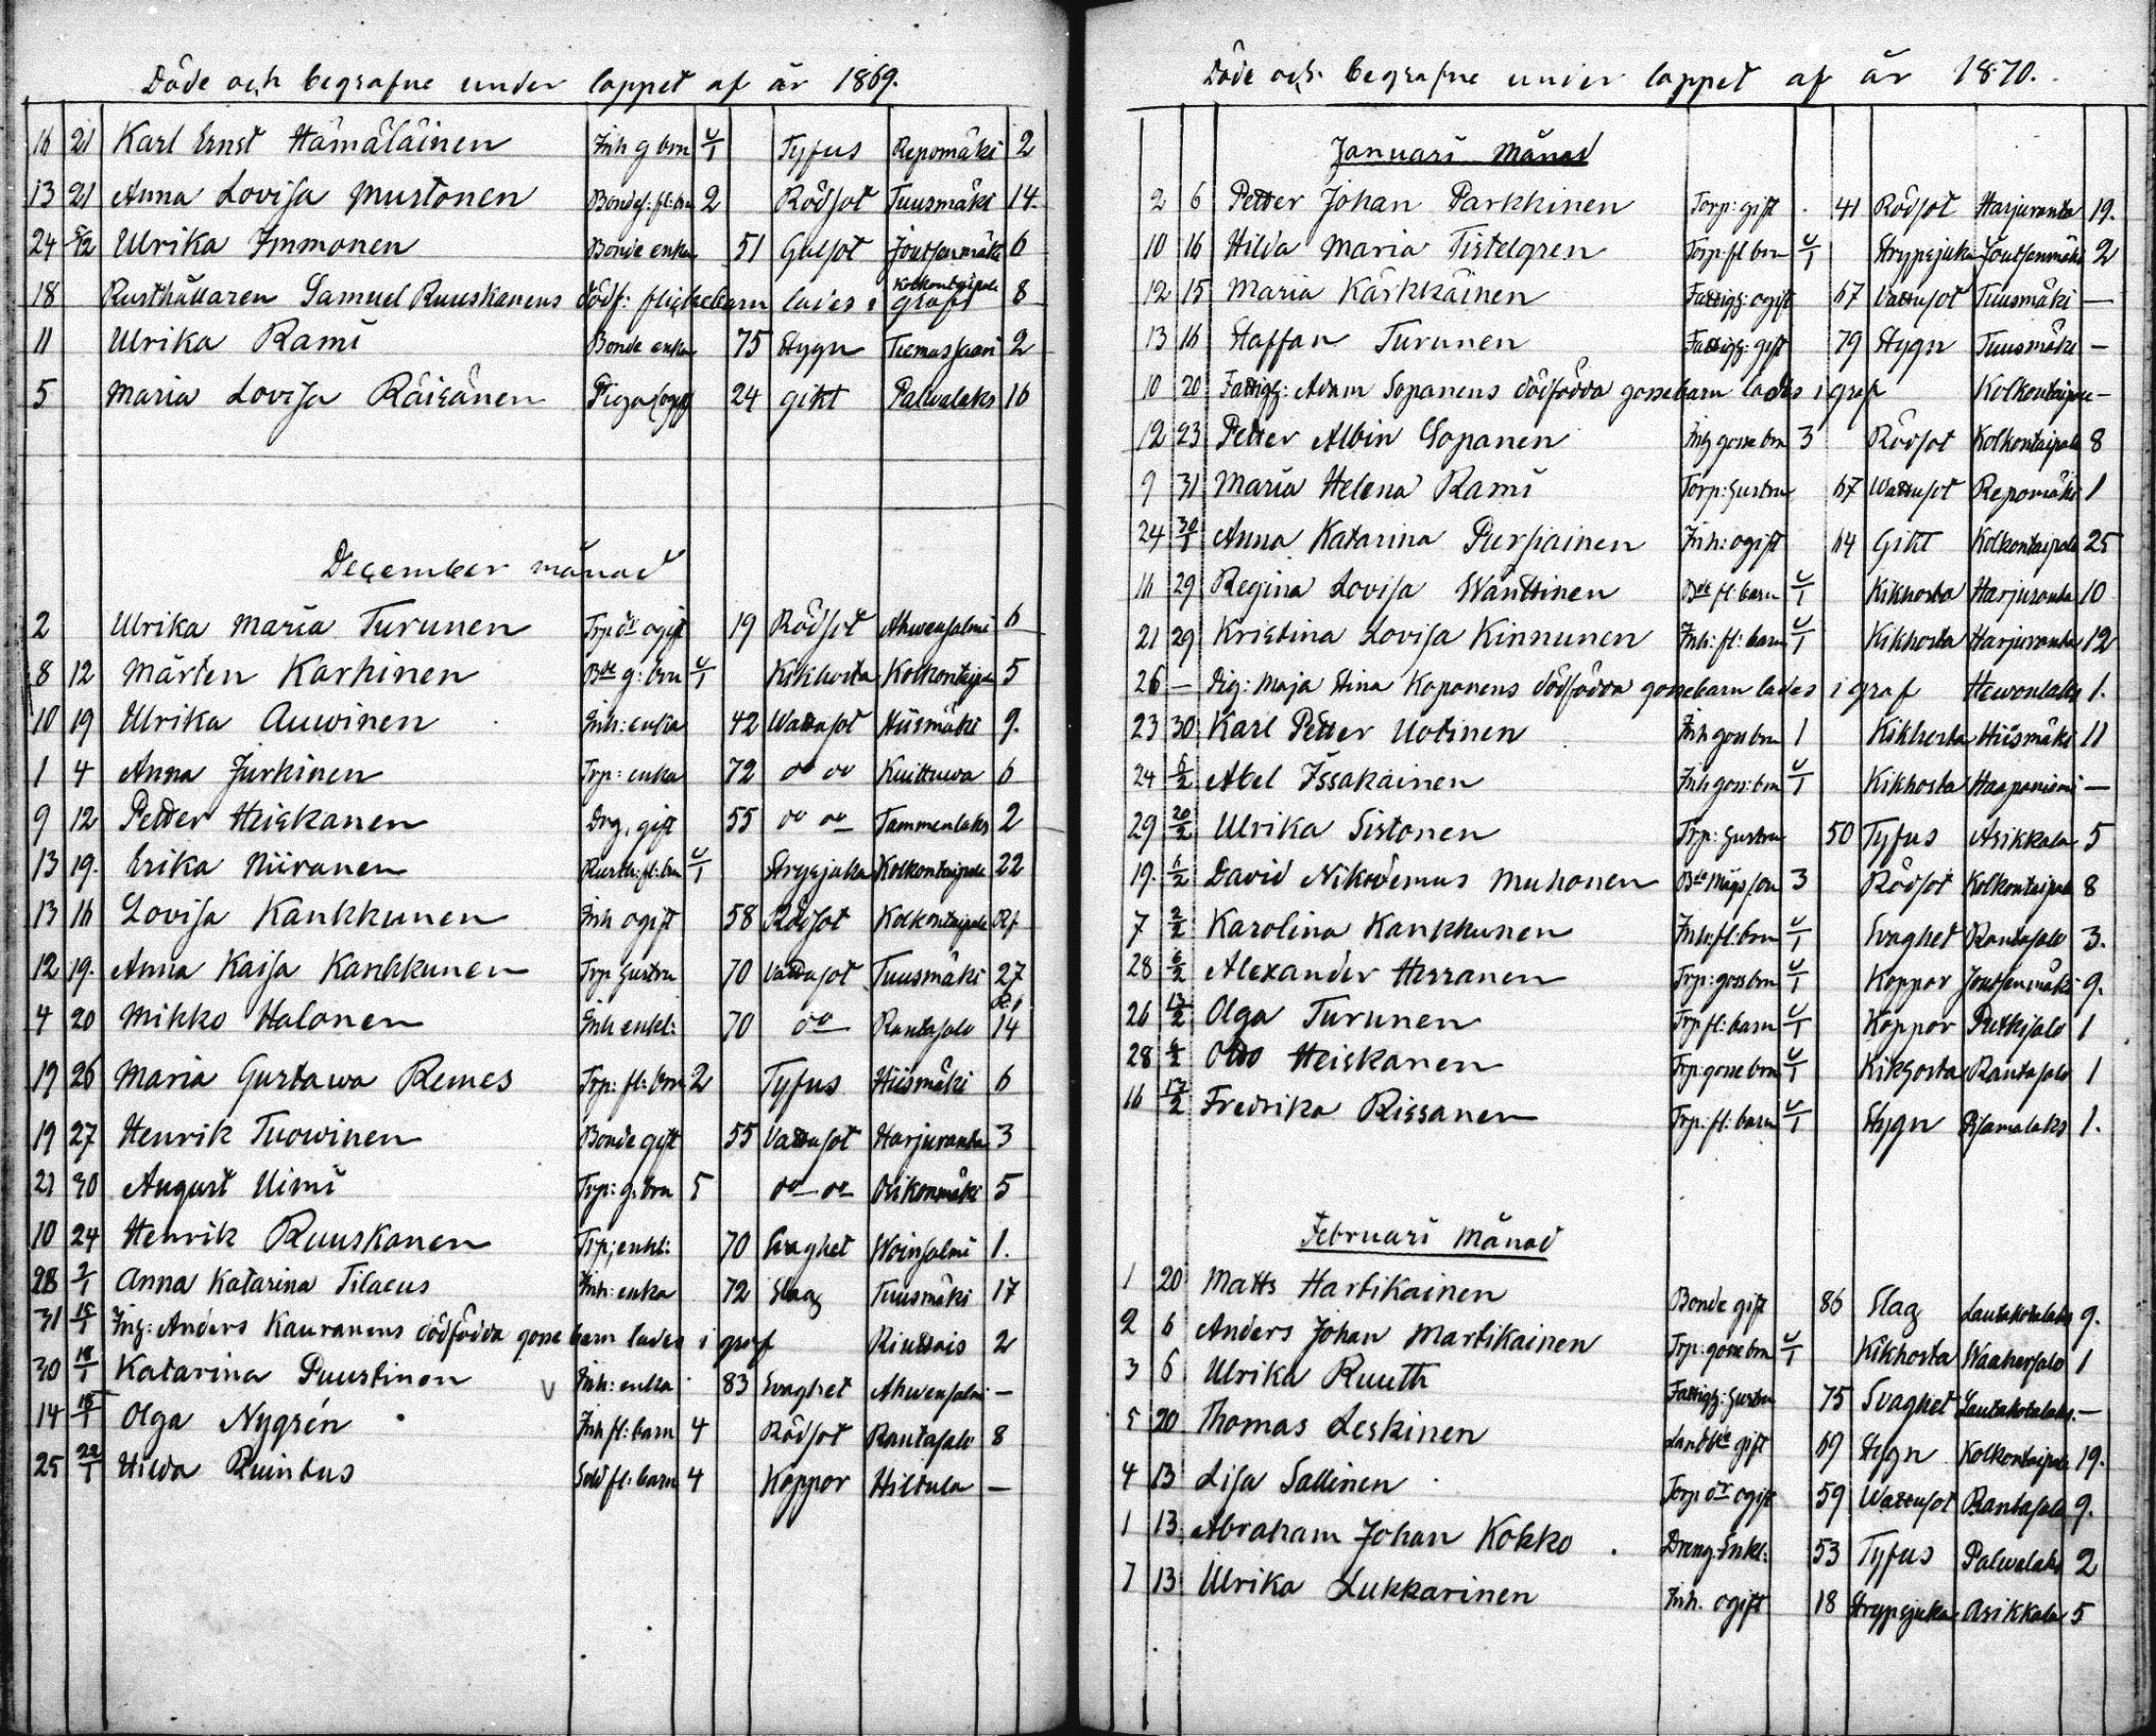 Döde och begrafne under loppet af år 1869.
16 21 Karl Ernst Hämäläinen Inh g brn u/1 Tyfus Repomäki 2
13 21 Anna Lovisa Mustonen Bondes: fl: brn 2 Rödsot Tuusmäki 14.
24 5/12 Ulrika Immonen Bonde enka 51 Gulsot Joutsenmäki 6
18 Rusthållaren Samuel Ruuskanens dödf: flickebarn lades i graf Kolkontaipale 8
11 Ulrika Rami Bonde enka 75 Stygn Tiemassaari 2
5 Maria Lovisa Räisänen Piga ogift 24 gikt Palvalaks 16
December månad
2 Ulrika Maria Turunen Trp dr ogift 19 Rödsot Ahvensalmi 6
8 12 Mårten Karhinen Bde g: brn u/1 Kikhosta Kolkontaipale 5
10 19 Ulrika Auvinen Inh: enka 42 Wattusot Hiismäki 9.
1 4 Anna Jurkinen Trp: enka 72 do do Kuittuwa 6
9 12 Petter Heiskanen Drg. gift 55 do do Tammenlaks 2
13 19. Erika Niiranen Rusth: fl: brn u/1 Strypsjuka Kolkontaipale 22
13 16 Lovisa Kankkunen Inh ogift 58 Rödsot Kolkontaipale Rf
12 19. Anna Kaisa Kankkunen Trp hustru 70 Vattusot Tuusmäki 27
4 20 Mikko Halonen Inh enkl: 70 do Rantasalo 14
19 26 Maria Gustawa Remes Trp: fl: brn 2 Tyfus Hiismäki 6
19 27 Henrik Tuowinen Bonde gift 55 Vattusot Harjuranta 3
21 30 August Uimi Trp: g: brn 5 do do Oikonmäki 5
10 24 Henrik Ruuskanen Trp; enkl: 70 Svaghet Woinsalmi 1.
28 2/1 Anna Katarina Tilaeus Inh: enka 72 Slag Tuusmäki 17
31 15/1 Inh: Anders Kauranens dödfödda gosse barn lades i graf 2
30 18/1 Katarina Puustinen v Inh: enka 83 Svaghet Ahvensalmi —
14 15/1 Olga Nygrén Inh fl: barn 4 Rödsot Rantasalo 8
25 22/1 Hilda Ruintus Sold fl: barn 4 Koppor Hiltula —
Döde och begrafne under loppet af år 1870.
Januari Månad
2 6 Petter Johan Parkkinen Torp: gift 41 Rödsot Harjuranta 19.
10 16 Hilda Maria Tistelgren Torp: fl brn u/1 Strypsjuka Joutsenmäki 2
12 15 Maria Kärkkäinen Fattigh: ogift 67 Vattusot Tuusmäki —
13 16 Staffan Turunen Fattigh: gift 79 Stygn Tuusmäki —
10 20 Fattigh: Adam Sopanens dödfödda gossebarn lades i graf Kolkontaipale —
12 23 Petter Albin Sopanen Inh gosse brn 3 Rödsot Kolkontaipale 8
9 31 Maria Helena Rami Torp: hustru 67 Wattusot Repomäki 1
24 30/1 Anna Katarina Pursiainen Inh: ogift 64 Gikt Kolkontaipale 25
16 29 Regina Lovisa Wänttinen Bde fl: barn u/1 Kikhosta Harjuranta 10
21 29 Kristina Lovisa Kinnunen Inh: fl: barn u/1 Kikhosta Harjuranta 12
26 — Pig: Maja Stina Koponens dödfödda gossebarn lades i graf Hewonlaks 1.
23 30 Karl Petter Uotinen Inh goss brn 1 Kikhosta Hiismäki 11
24 6/2 Abel Issakainen Inh goss: brn u/1 Kikhosta Haapaniemi —
29 20/2 Ulrika Sistonen Trp: hustru 50 Tyfus Asikkala 5
19. 6/2 David Nikodemus Muhonen Bde Mågs son 3 Rödsot Kolkontaipale 8
7 2/2 Karolina Kankkunen Inh: fl: brn u/1 Svaghet Rantasalo 3.
28 6/2 Alexander Herranen Trp: goss brn u/1 Koppor Joutsenmäki 9.
26 13/2 Olga Turunen Trp fl: barn u/1 Koppor Putkisalo 1
28 6/2 Otto Heiskanen Trp: gosse brn u/1 Kikhosta Rantasalo 1
16 17/2 Fredrika Rissanen Trp: fl: barn u/1 Stygn 1.
Februari Månad
1 20 Matts Hartikainen Bonde gift 86 Slag Lautakotalaks 9.
2 6 Anders Johan Martikainen Trp: gosse brn u/1 Kikhosta Waahersalo 1
3 6 Ulrika Ruuth Fattigh: hustru 75 Svaghet Lautakotalaks. —
5 20 Thomas Leskinen Landbde gift 69 Stygn Kolkontaipale 19.
4 13 Lisa Sallinen Torp dr ogift 59 Wattusot Rantasalo 9.
1 13 Abraham Johan Kokko Dreng: Enkl: 53 Tyfus Palvalaks 2
7 13 Ulrika Lukkarinen Inh. ogift 18 Strypsjuka Asikkala 5